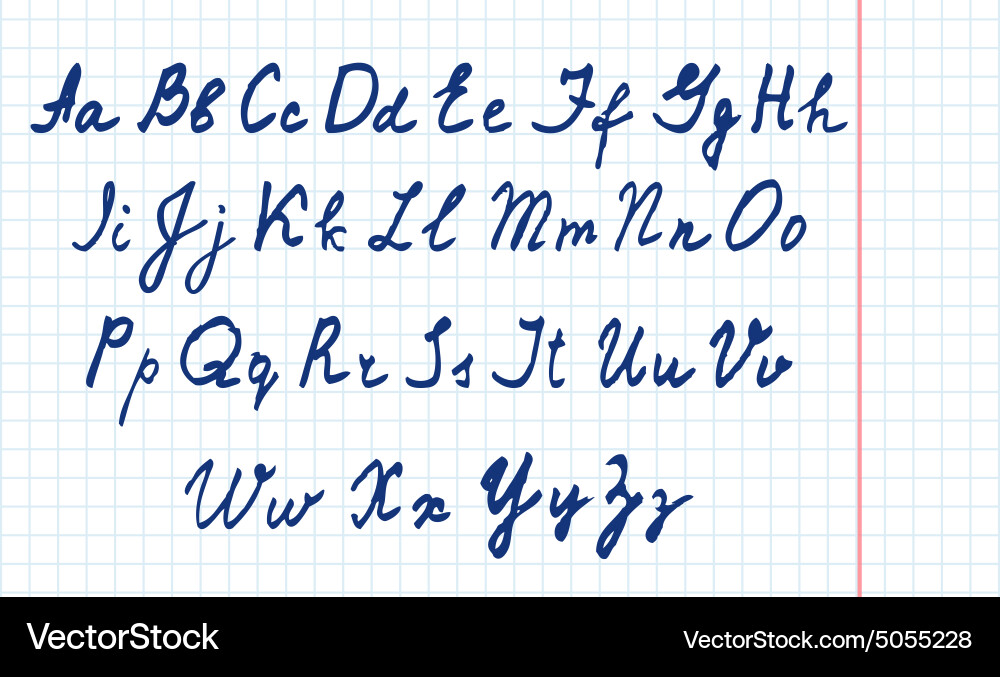 Aa Bb Cc Dd Ee Ff Gg Hh
Ii Jj Kk Ll Mm Nn Oo
Pp Qq Rr Ss Tt Uu Vv
Ww Xx Yy Zz
VectorStock
VectorStock.com/5055228